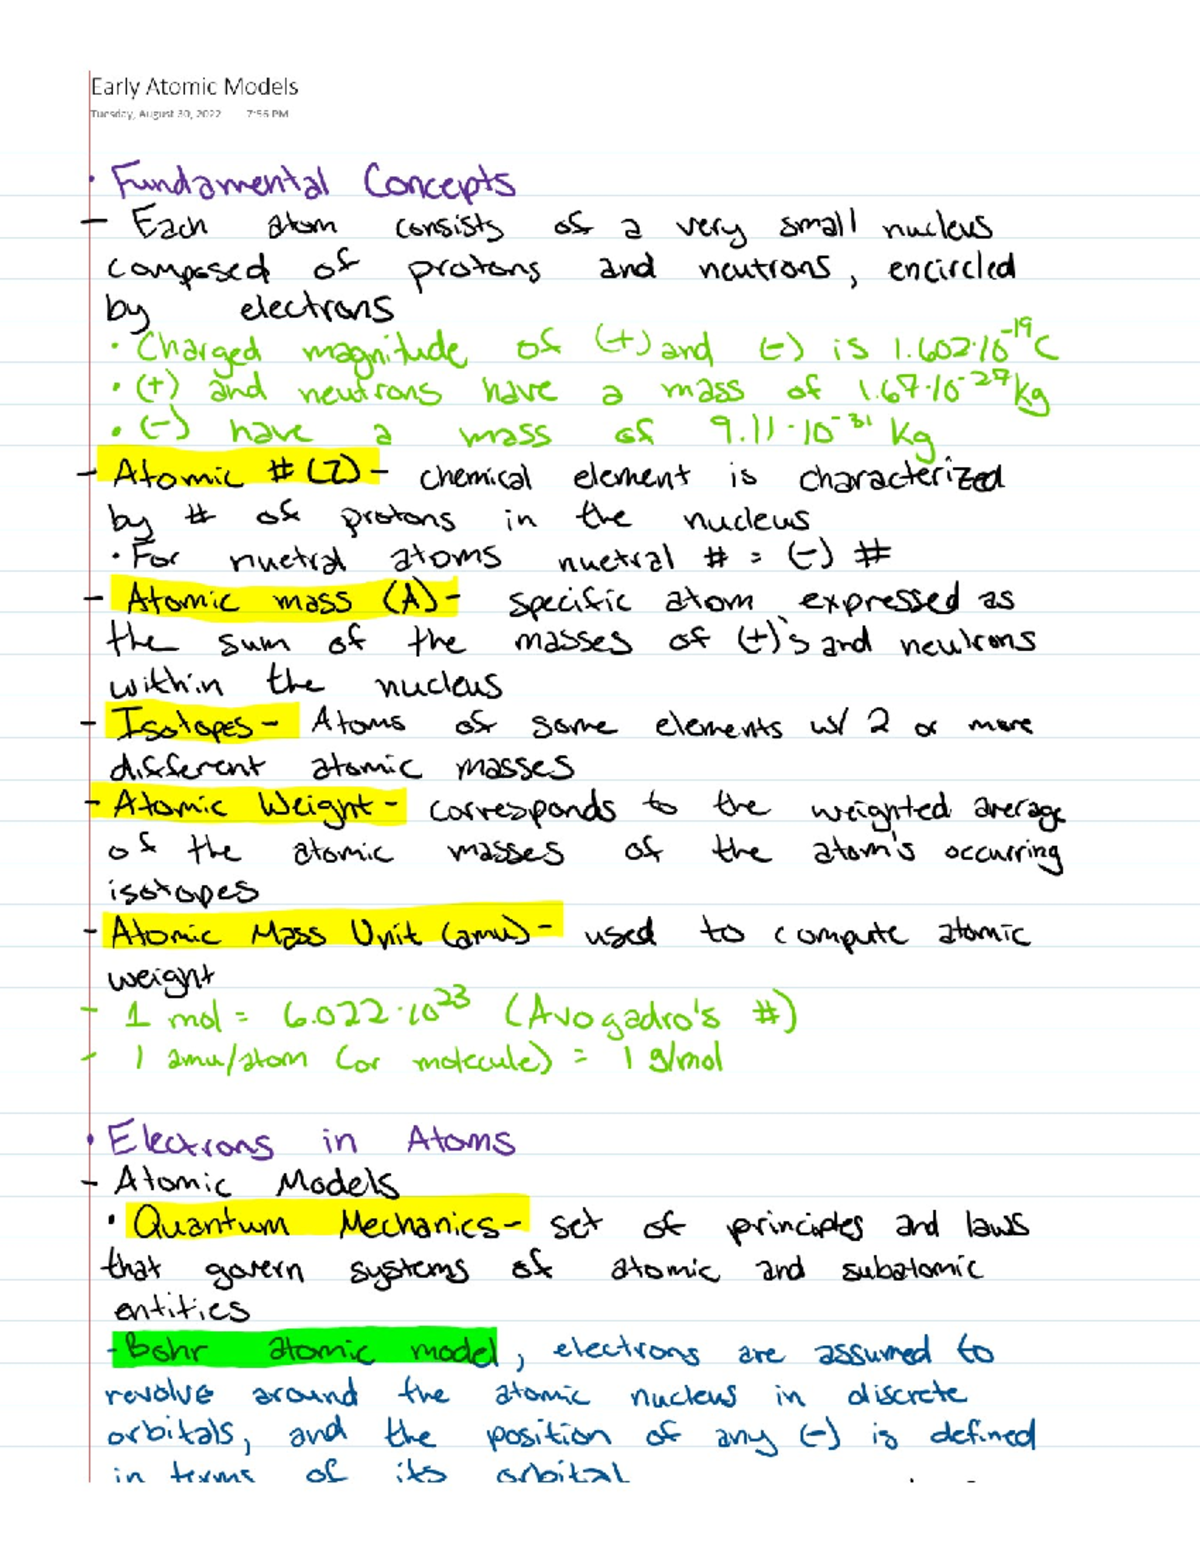 Early Atomic Models
Tuesday, August 30, 2022 7:56 PM
· Fundamental Concepts
- Each atom consists of a very small nucleus
composed of protons and neutrons, encircled
by electrons
· Charged magnitude of (+) and (-) is 1.602·10⁻¹⁹ C
· (+) and neutrons have a mass of 1.67·10⁻²⁷ kg
· (-) have a mass of 9.11·10⁻³¹ kg
- Atomic # (Z) - chemical element is characterized
by # of protons in the nucleus
· For nuetral atoms nuetral # = (-) #
- Atomic mass (A) - specific atom expressed as
the sum of the masses of (+)'s and neutrons
within the nucleus
- Isotopes - Atoms of some elements w/ 2 or more
different atomic masses
- Atomic Weight - corresponds to the weighted average
of the atomic masses of the atom's occurring
isotopes
- Atomic Mass Unit (amu) - used to compute atomic
weight
- 1 mol = 6.022·10²³ (Avogadro's #)
- 1 amu/atom (or molecule) = 1 g/mol
· Electrons in Atoms
- Atomic Models
· Quantum Mechanics - set of principles and laws
that govern systems of atomic and subatomic
entities
- Bohr atomic model, electrons are assumed to
revolve around the atomic nucleus in discrete
orbitals, and the position of any (-) is defined
in terms of its orbital